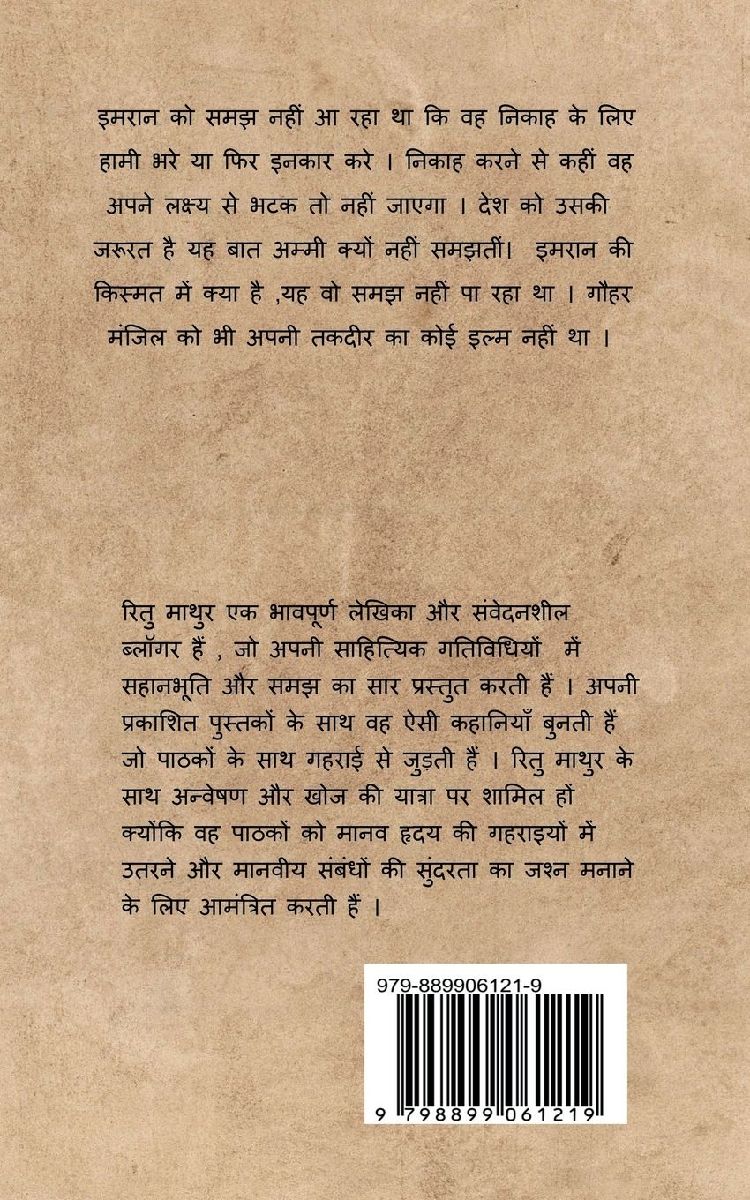 इमरान को समझ नहीं आ रहा था कि वह निकाह के लिए
हामी भरे या फिर इनकार करे । निकाह करने से कहीं वह
अपने लक्ष्य से भटक तो नहीं जाएगा । देश को उसकी
जरूरत है यह बात अम्मी क्यों नहीं समझतीं। इमरान की
किस्मत में क्या है ,यह वो समझ नहीं पा रहा था । गौहर
मंजिल को भी अपनी तकदीर का कोई इल्म नहीं था ।
रितु माथुर एक भावपूर्ण लेखिका और संवेदनशील
ब्लॉगर हैं , जो अपनी साहित्यिक गतिविधियों में
सहानभूति और समझ का सार प्रस्तुत करती हैं । अपनी
प्रकाशित पुस्तकों के साथ वह ऐसी कहानियाँ बुनती हैं
जो पाठकों के साथ गहराई से जुड़ती हैं । रितु माथुर के
साथ अन्वेषण और खोज की यात्रा पर शामिल हों
क्योंकि वह पाठकों को मानव हृदय की गहराइयों में
उतरने और मानवीय संबंधों की सुंदरता का जश्न मनाने
के लिए आमंत्रित करती हैं ।
979-889906121-9
9 798899 061219